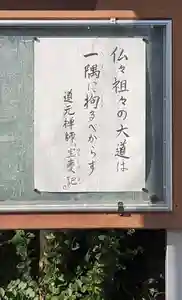 仏々祖々の大道は
一隅に拘るべからず
道元禅師 宝慶記